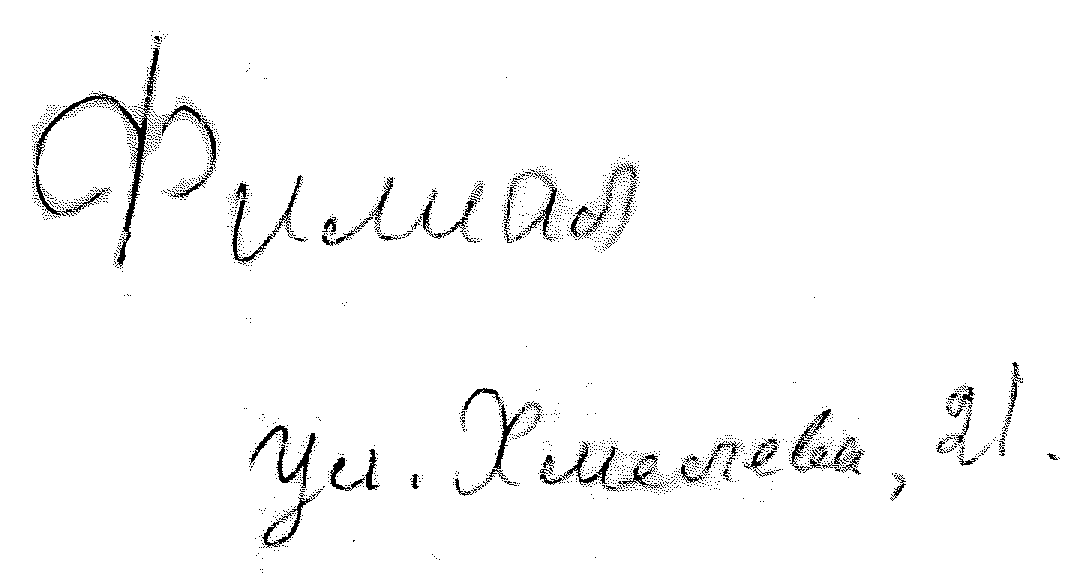 Филиал
ул. Хмелева, 21.